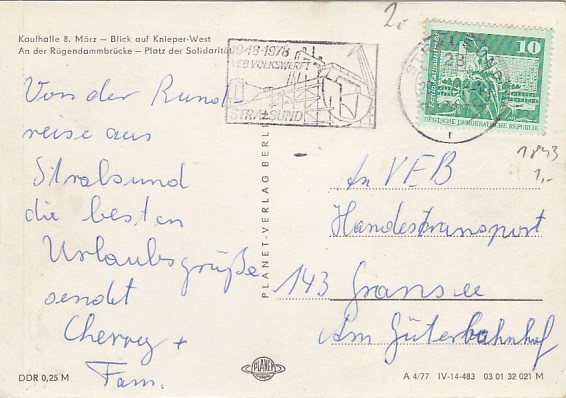 Kaufhalle 8. März — Blick auf Knieper-West
An der Rügendammbrücke — Platz der Solidarität
Von der Rund
reise aus
Stralsund
die besten
Urlaubsgrüße
sendet
Cherry +
Fam.
DDR 0,25 M
2,-
1948-1978
VEB VOLKSWERFT
STRALSUND
STRALSUND
10
DEUTSCHE DEMOKRATISCHE REPUBLIK
1843
1,-
PLANET-VERLAG BERLIN
An VEB
Handestransport
143 Gransee
Am Güterbahnhof
PLANET
A 4/77 IV-14-483 03 01 32 021 M